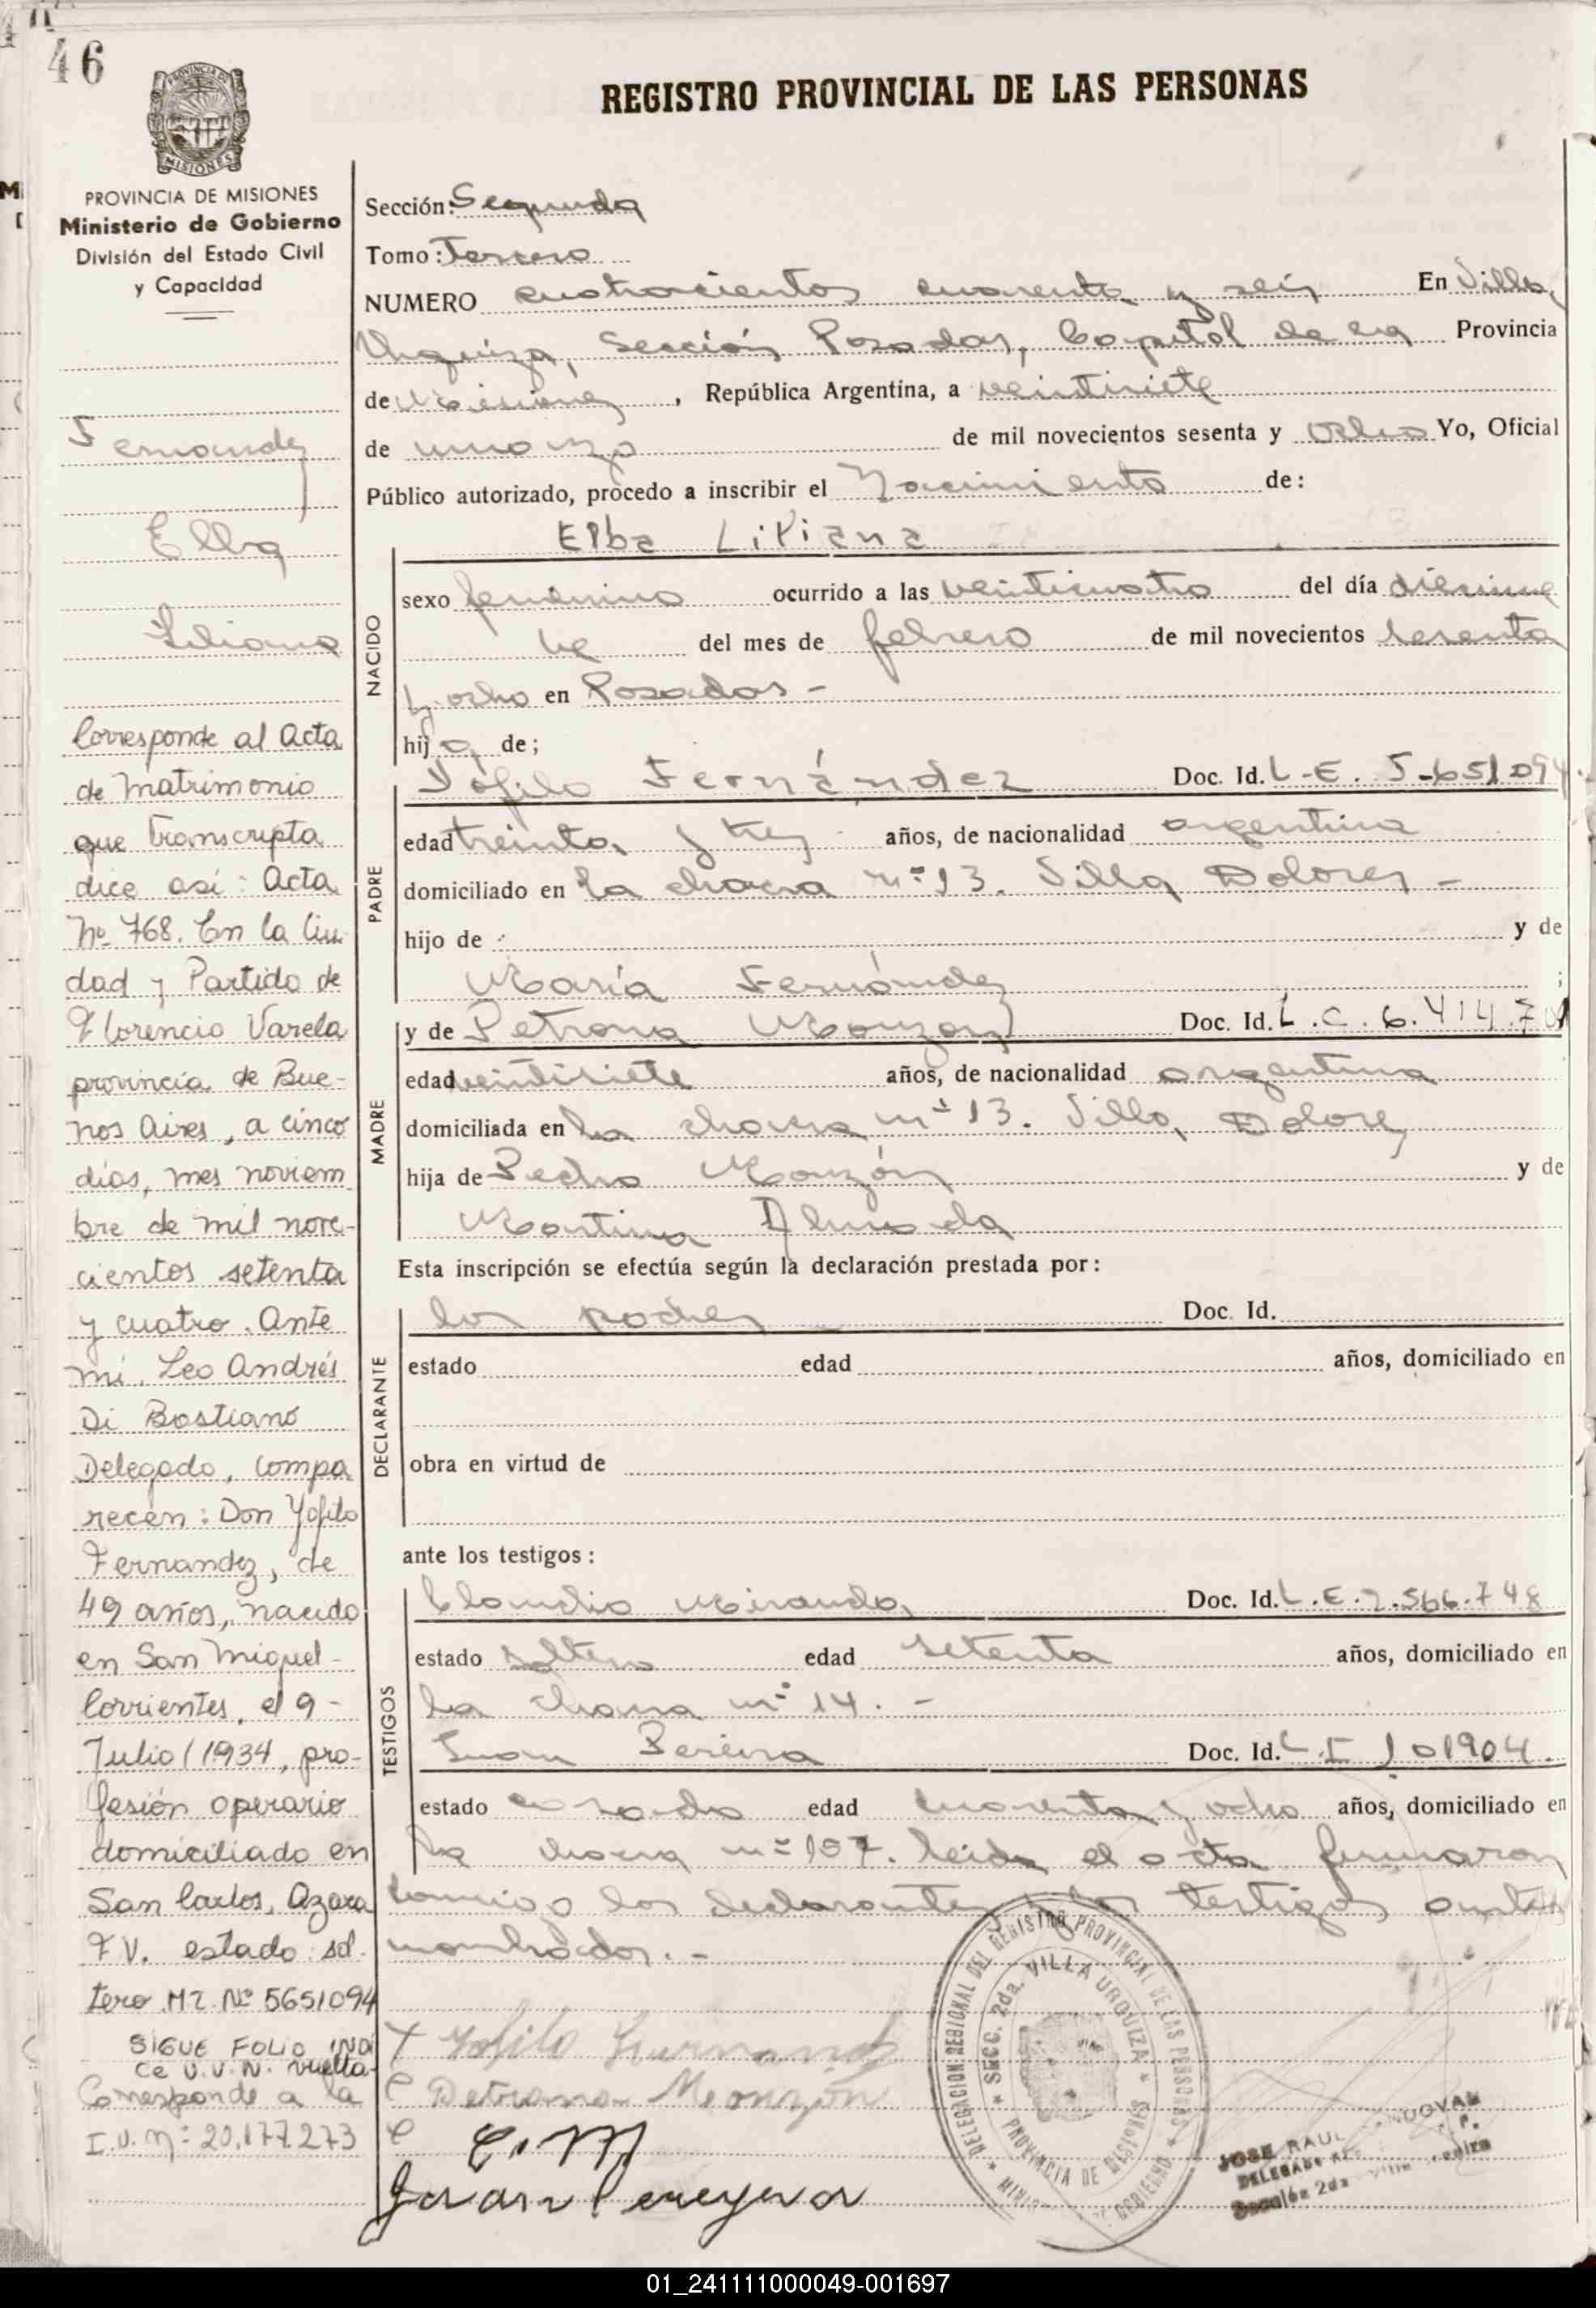 46
PROVINCIA DE
MISIONES
REGISTRO PROVINCIAL DE LAS PERSONAS
PROVINCIA DE MISIONES
Ministerio de Gobierno
División del Estado Civil
y Capacidad
Fernandez
Elba
Liliana
Corresponde al Acta
de Matrimonio
que transcripta
dice así: Acta
Nº 768. En la Ciu-
dad y Partido de
Florencio Varela
provincia de Bue-
nos Aires, a cinco
días, mes noviem
bre de mil nove-
cientos setenta
y cuatro. Ante
mí, Leo Andrés
Di Bastiano
Delegado, compa
recen: Don Yofilo
Fernandez, de
49 años, nacido
en San Miguel -
Corrientes, el 9 -
Julio/1934, pro-
fesión operario
domiciliado en
San Carlos, Azara
F.V. estado: sol.
tero MI. Nº 5651094
SIGUE FOLIO INDI
ce U.V.N. vuelta-
Corresponde a la
I.U.Nº: 20.177.273
Sección: Segunda
Tomo: Tercero
NUMERO cuatrocientos cuarenta y seis En Villa
Urquiza, Sección Posadas, Capital de la Provincia
de Misiones, República Argentina, a veintisiete
de marzo de mil novecientos sesenta y ocho Yo, Oficial
Público autorizado, procedo a inscribir el Nacimiento de:
Elba Liliana
NACIDO
sexo femenino ocurrido a las veinticuatro del día diecinue
ve del mes de febrero de mil novecientos sesenta
y ocho en Posadas -
hija de;
PADRE
Yófilo Fernández Doc. Id. L.E. 5-651094
edad treinta y tres años, de nacionalidad argentina
domiciliado en la chacra nº 13. Villa Dolores -
hijo de y de
María Fernández ;
MADRE
y de Petrona Monzon Doc. Id. L.C. 6.414.701
edad veintisiete años, de nacionalidad argentina
domiciliada en la chacra nº 13. Villa Dolores
hija de Pedro Monzón y de
Martina Almada
Esta inscripción se efectúa según la declaración prestada por:
DECLARANTE
los padres Doc. Id.
estado edad años, domiciliado en
obra en virtud de
ante los testigos:
TESTIGOS
Claudio Miranda Doc. Id. L.E. 2.566.748
estado soltero edad setenta años, domiciliado en
la chacra nº 14. -
Juan Pereira Doc. Id. C.I 101904.
estado casado edad cuarenta y ocho años, domiciliado en
la chacra nº 107. leida el acta firmaron
conmigo los declarantes y los testigos antes
nombrados. -
Yofilo Fernandez
Petrona Monzón
C. M
Juan Pereyra
DELEGACION REGIONAL DEL REGISTRO PROVINCIAL DE LAS PERSONAS
SECC. 2da. VILLA URQUIZA
PROVINCIA DE MISIONES
JOSE RAUL
Sección 2da
01_241111000049-001697